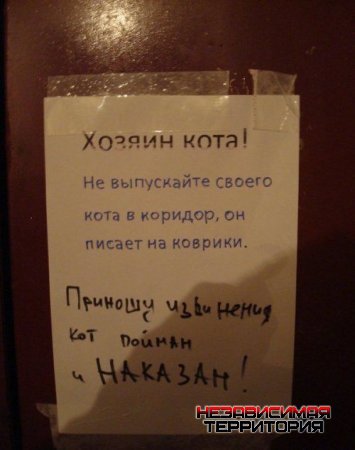 Хозяин кота!
Не выпускайте своего
кота в коридор, он
писает на коврики.
Приношу извинения
кот пойман
и НАКАЗАН!
НЕЗАВИСИМАЯ
ТЕРРИТОРИЯ